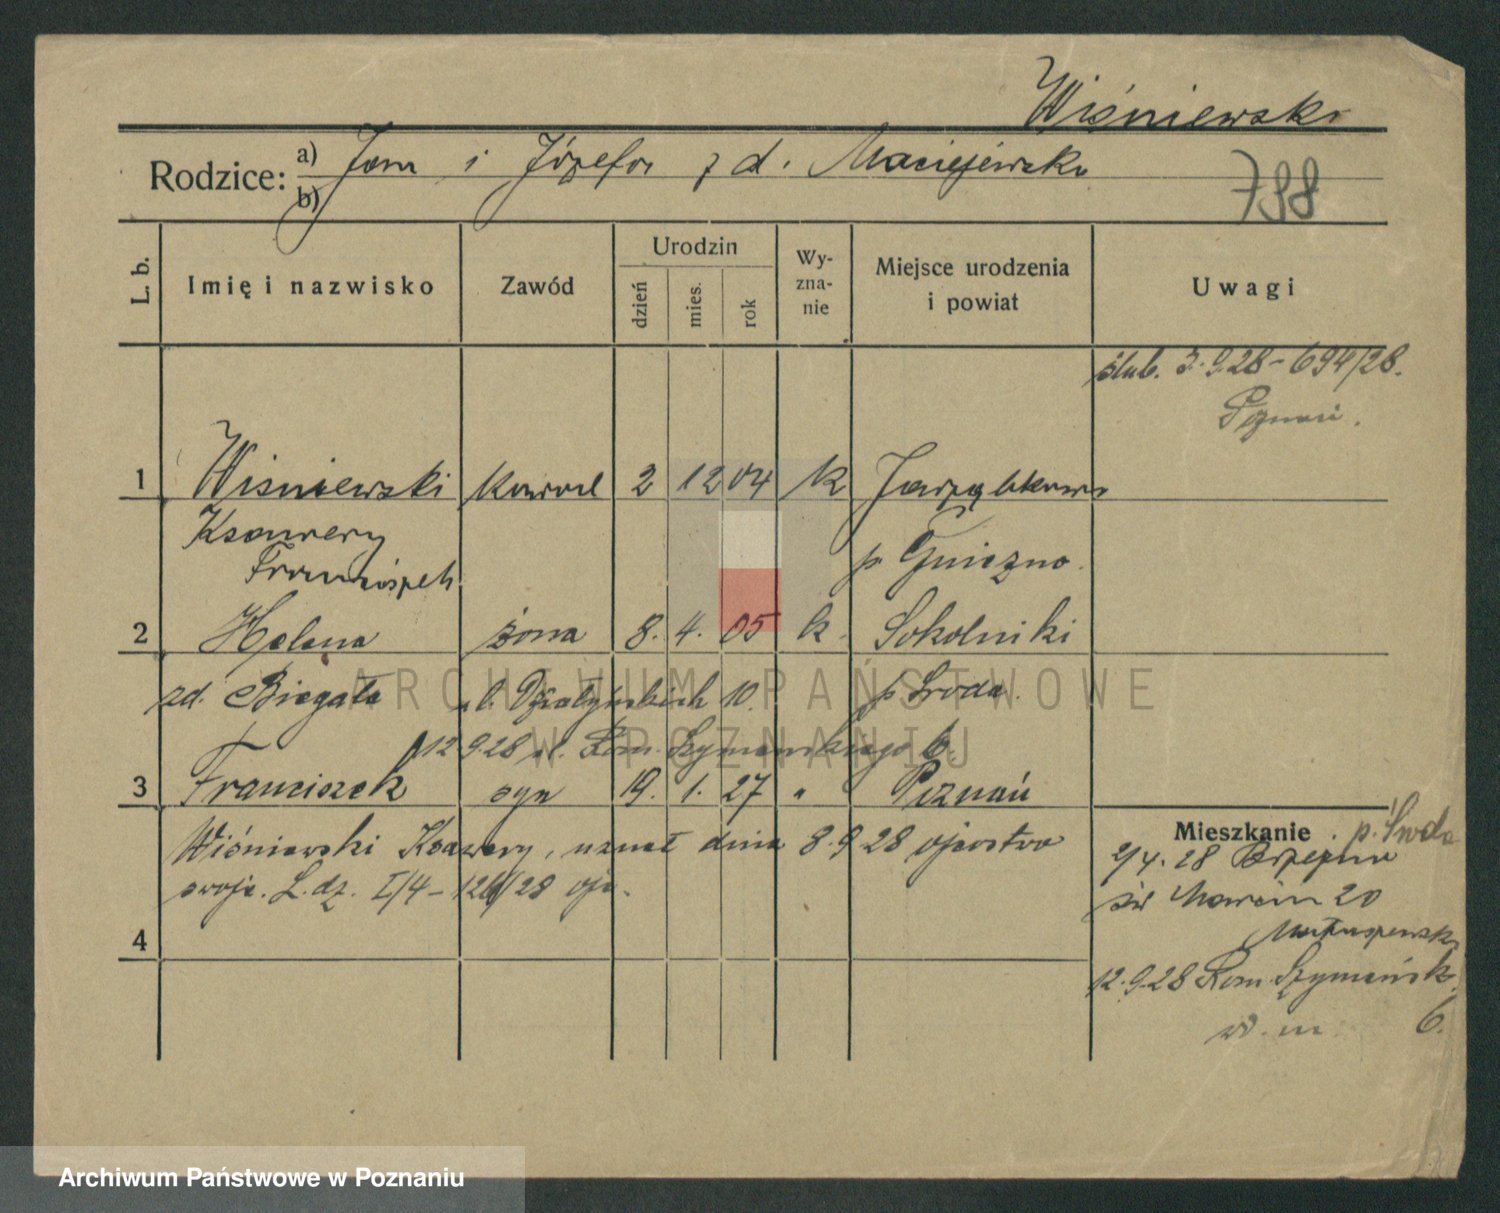 Wiśniewski
Rodzice: a) Jan i Józefa z d. Maciejewska
b)
798
L. b.
Imię i nazwisko
Zawód
Urodzin
dzień
mies.
rok
Wy-
zna-
nie
Miejsce urodzenia
i powiat
Uwagi
ślub. 3.9.28 – 694/28.
Poznań.
1 Wiśniewski kowal 2 12 04 k Jarząbkowo
Ksawery p. Gniezno.
Franciszek
2 Helena żona 8. 4. 05 k. Sokolniki
zd. Biegała ul. Działyńskich 10. p. Środa.
12.9.28 ul. Rom. Szymańskiego 6.
3 Franciszek syn 19. 1. 27 " Poznań
Wiśniewski Ksawery, uznał dnia 8.9.28 ojcostwo
swoje. L. dz. I/4 – /28
4
Mieszkanie p. Środa
2/4. 28
św Marcin 20
12.9.28 Rom. Szymańsk.
w. m. 6.
ARCHIWUM PAŃSTWOWE
W POZNANIU
Archiwum Państwowe w Poznaniu